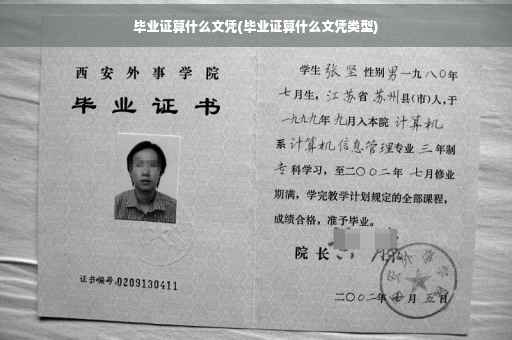 毕业证算什么文凭(毕业证算什么文凭类型)
西安外事学院
毕业证书
证书编号:0209130411
学生 张坚 性别 男 一九八〇年
七月生, 江苏省 苏州县(市)人,于
一九九九年 九月入本院 计算机
系 计算机信息管理专业 三 年制
专科学习,至二〇〇二年 七月修业
期满,学完教学计划规定的全部课程,
成绩合格,准予毕业。
院长
二〇〇二年 七月五日